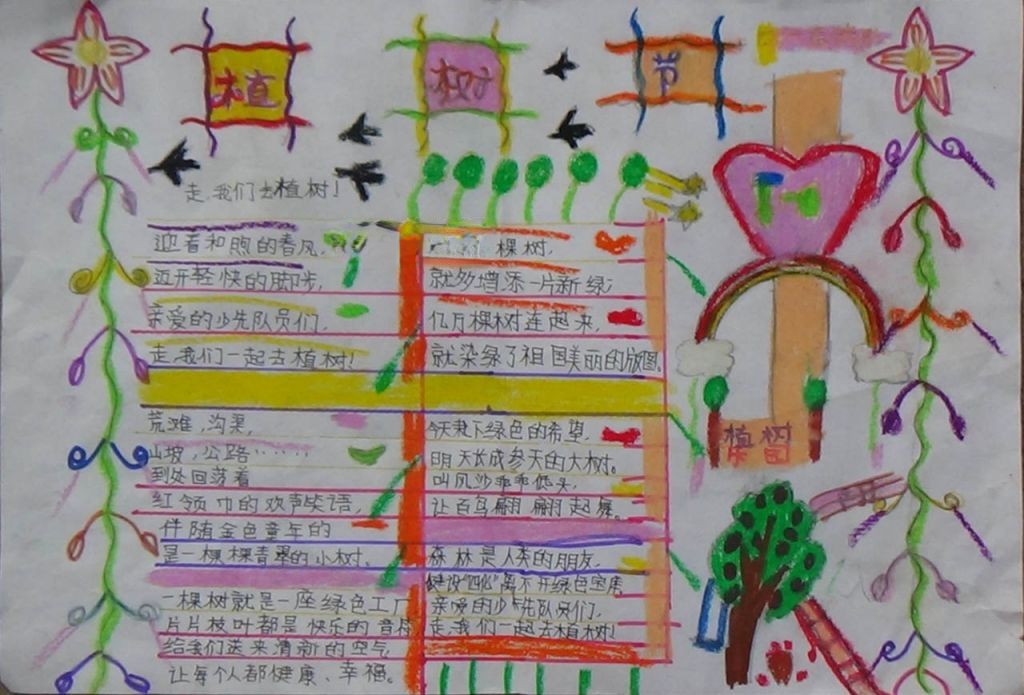 植
树
节
走,我们去植树!
迎着和煦的春风,
迈开轻快的脚步,
亲爱的少先队员们,
走,我们一起去植树!
荒滩,沟渠,
山坡,公路……
到处回荡着
红领巾的欢声笑语,
伴随金色童年的
是一棵棵青翠的小树。
一棵树就是一座绿色工厂
片片枝叶都是快乐的音符
给我们送来清新的空气,
让每个人都健康、幸福。
棵树,
就多增添一片新绿;
亿万棵树连起来,
就染绿了祖国美丽的版图。
今天栽下绿色的希望,
明天长成参天的大树。
叫风沙乖乖低头,
让百鸟翩翩起舞。
森林是人类的朋友,
建设"四化"离不开绿色宝库
亲爱的少先队员们,
走,我们一起去植树!
植树
乐园